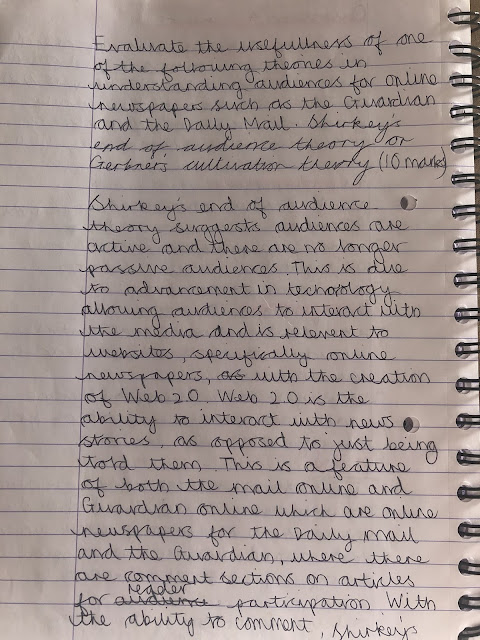 Evaluate the usefullness of one
of the following theories in
understanding audiences for online
newspapers such as the Guardian
and the Daily Mail. Shirkey's
end of audience theory or
Gerbner's cultivation theory (10 marks)
Shirkey's end of audience
theory suggests audiences are
active and there are no longer
passive audiences. This is due
to advancement in technology
allowing audiences to interact with
the media and is relevent to
websites, specifically online
newspapers, as with the creation
of Web 2.0. Web 2.0 is the
ability to interact with news
stories, as opposed to just being
told them. This is a feature
of both the mail online and
Guardian online which are online
newspapers for the Daily Mail
and the Guardian, where there
are comment sections on articles
for audience reader participation. With
the ability to comment, Shirkey's